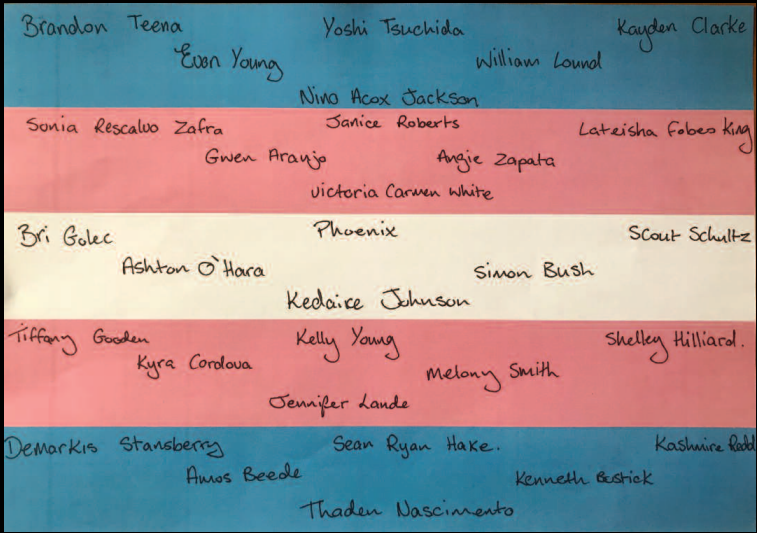 Brandon Teena Yoshi Tsuchida Kayden Clarke
Evan Young William Lound
Nino Acox Jackson
Sonia Rescalvo Zafra Janice Roberts Lateisha Fobes King
Gwen Araujo Angie Zapata
Victoria Carmen White
Bri Golec Phoenix Scout Schultz
Ashton O'Hara Simon Bush
Kedaire Johnson
Tiffany Gooden Kelly Young Shelley Hilliard.
Kyra Cordova Melony Smith
Jennifer Lande
Demarkis Stansberry Sean Ryan Hake. Kashmire Redd
Amos Beede Kenneth Bostick
Thaden Nascimento